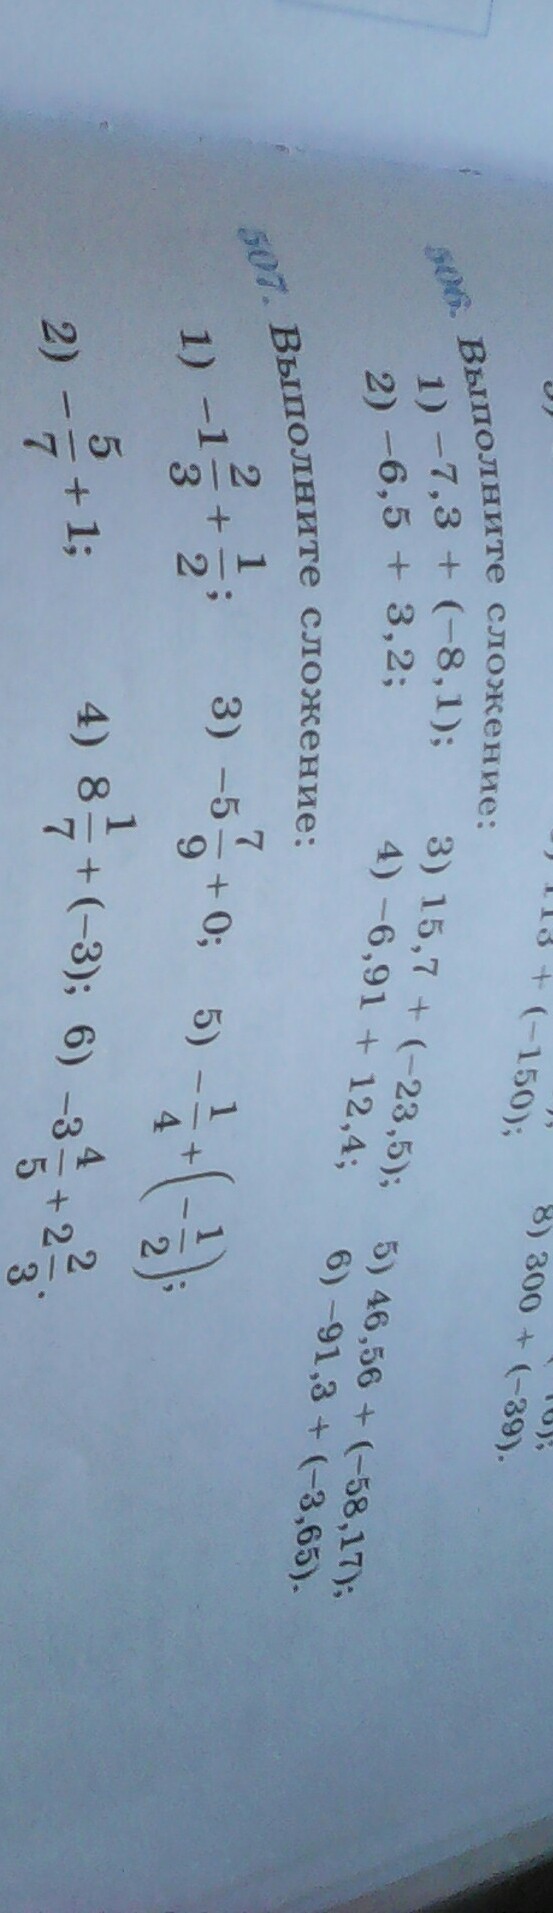 113 + (−150); 8) 300 + (−39).
506. Выполните сложение:
1) −7,3 + (−8,1); 3) 15,7 + (−23,5); 5) 46,56 + (−58,17);
2) −6,5 + 3,2; 4) −6,91 + 12,4; 6) −91,3 + (−3,65).
507. Выполните сложение:
1) −1 2/3 + 1/2; 3) −5 7/9 + 0; 5) −1/4 + (−1/2);
2) −5/7 + 1; 4) 8 1/7 + (−3); 6) −3 4/5 + 2 2/3.